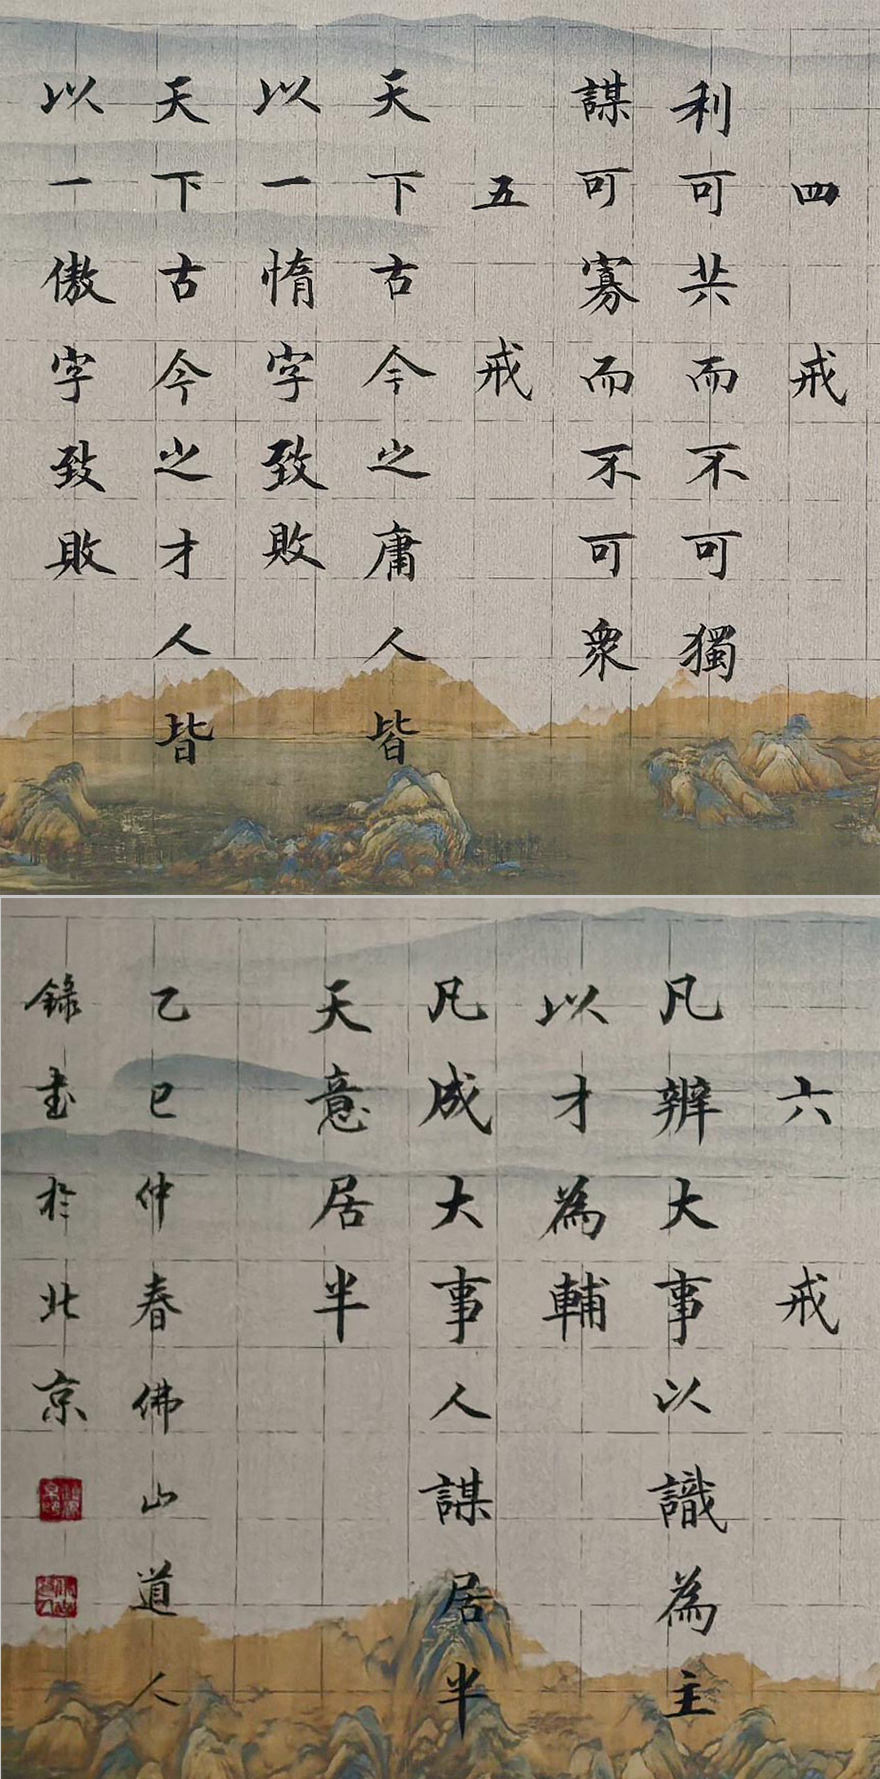 四戒
利可共而不可獨
謀可寡而不可衆
五戒
天下古今之庸人皆
以一惰字致敗
天下古今之才人皆
以一傲字致敗
六戒
凡辨大事以識為主
以才為輔
凡成大事人謀居半
天意居半
乙巳仲春佛山道人
錄書於北京